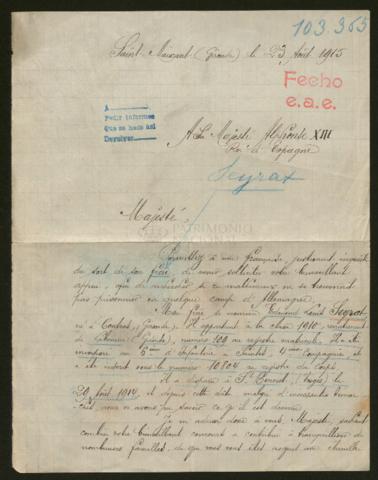 103.365
Saint-        (Gironde) le 23 Août 1915
Fecho
e.a.e.
A
Pedir informes
Que se hace así
Devolver
A Sa Majesté Alphonse XIII
Roi d'Espagne
Seyrat
PATRIMONIO
NACIONAL
Majesté,
Permettez à une Française, justement inquiète
du sort de son frère, de venir solliciter votre bienveillant
appui, afin de               si ce malheureux ne se trouverait
pas prisonnier en quelque camp d'Allemagne.
Mon frère se nomme Edmond Louis Seyrat
né à Contras, (Gironde). Il appartient à la classe 1910, recrutement
de Libourne (Gironde), numéro 100 au registre matricule. Il a été
incorporé au 6ème d'Infanterie à Saintes, 4ème Compagnie et
a été inscrit sous le numéro 10104 au registre du Corps.
Il a disparu à St         (    ) le
29 Août 1914, et depuis cette date malgré d'incessantes démar-
ches, nous n'avons pu savoir ce qu'il est devenu.
Je m'adresse donc à vous, Majesté, sachant
combien votre bienveillant concours a contribué à tranquilliser de
nombreuses familles, de que vous vous êtes acquis une